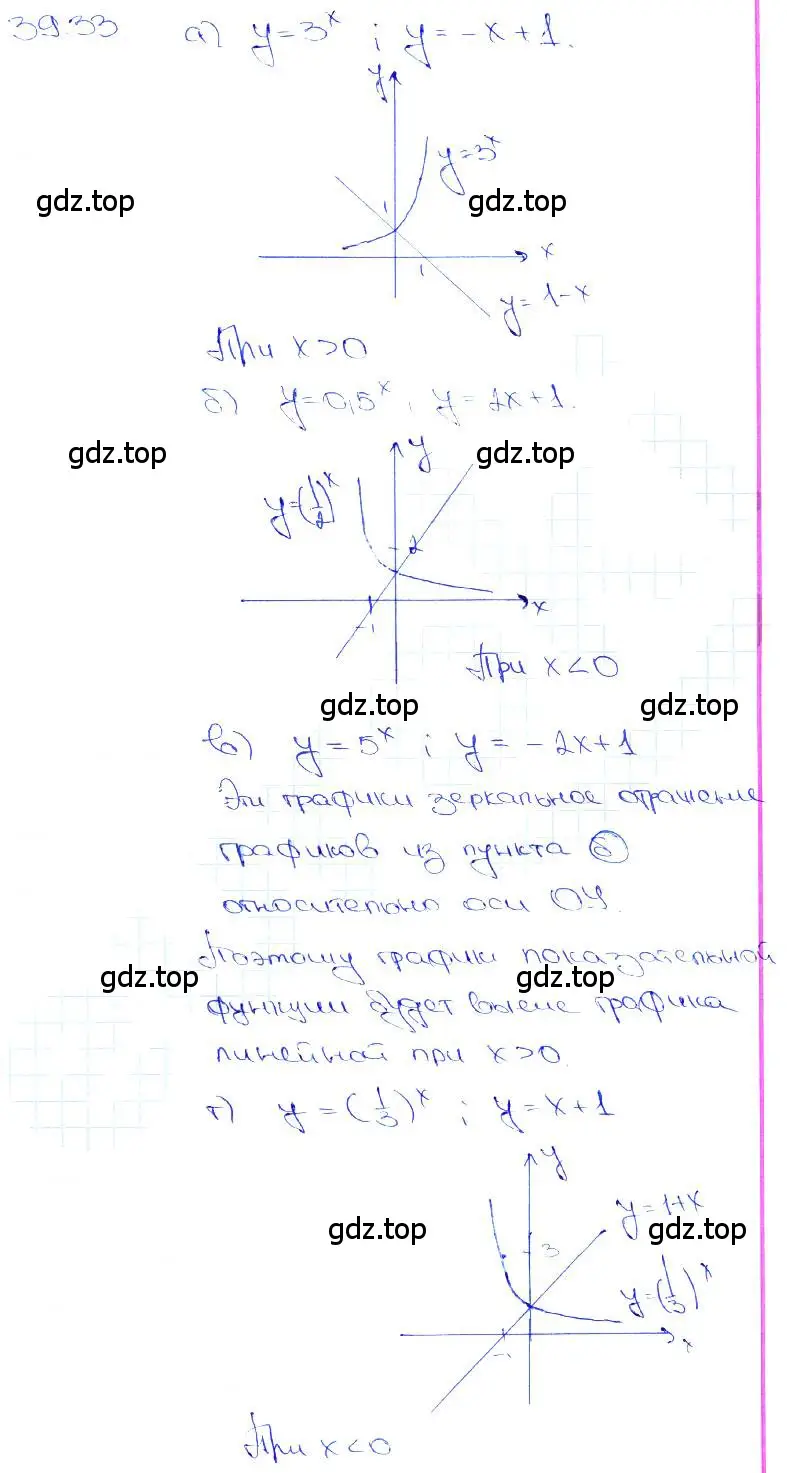 39.33 а) y=3ˣ ; y=-x+1.
y
y=3ˣ
gdz.top gdz.top
1
x
1
y=1-x
При x>0
б) y=0,5ˣ, y=2x+1.
gdz.top gdz.top
y
y=(1/2)ˣ
2
x
-1
При x<0
gdz.top gdz.top
в) y=5ˣ ; y=-2x+1
Эти графики зеркальное отражение
графиков из пункта б
относительно оси OY.
Поэтому график показательной
gdz.top gdz.top
функции будет выше графика
линейной при x>0.
г) y=(1/3)ˣ ; y=x+1
y
y=1+x
gdz.top gdz.top
3
y=(1/3)ˣ
x
-1
При x<0